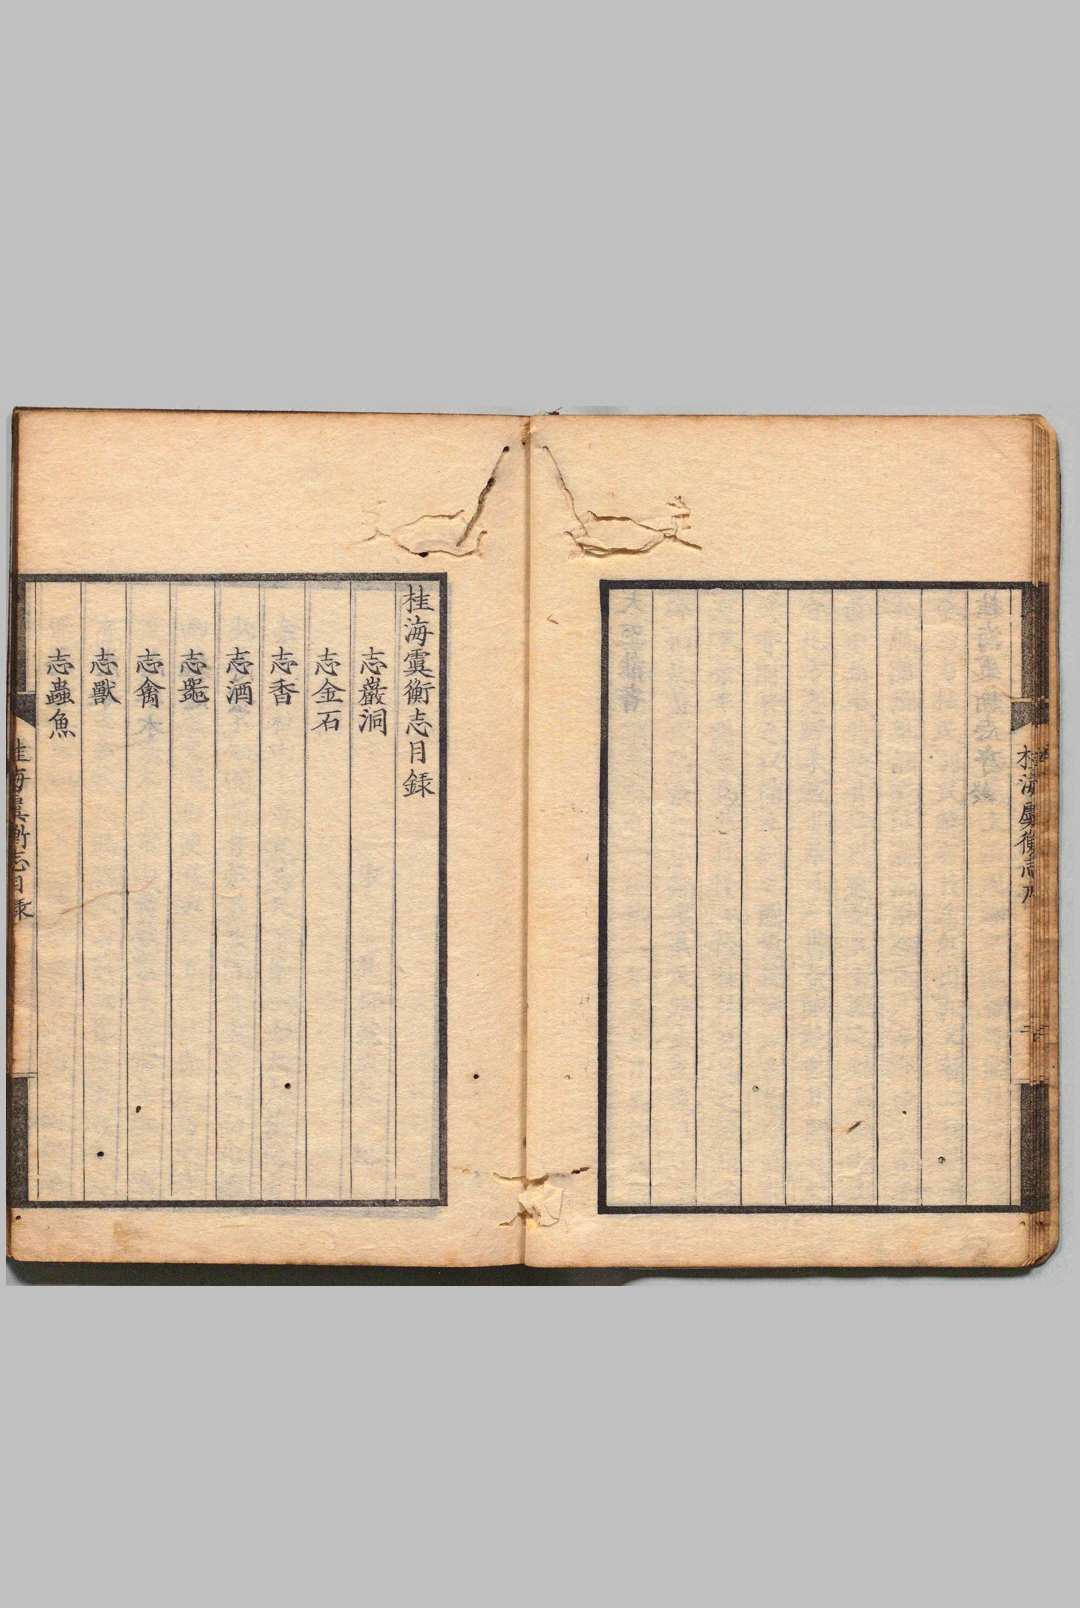 桂海虞衡志目録
志巖洞
志金石
志香
志酒
志器
志禽
志獸
志蟲魚
桂海虞衡志目録
桂海虞衡志